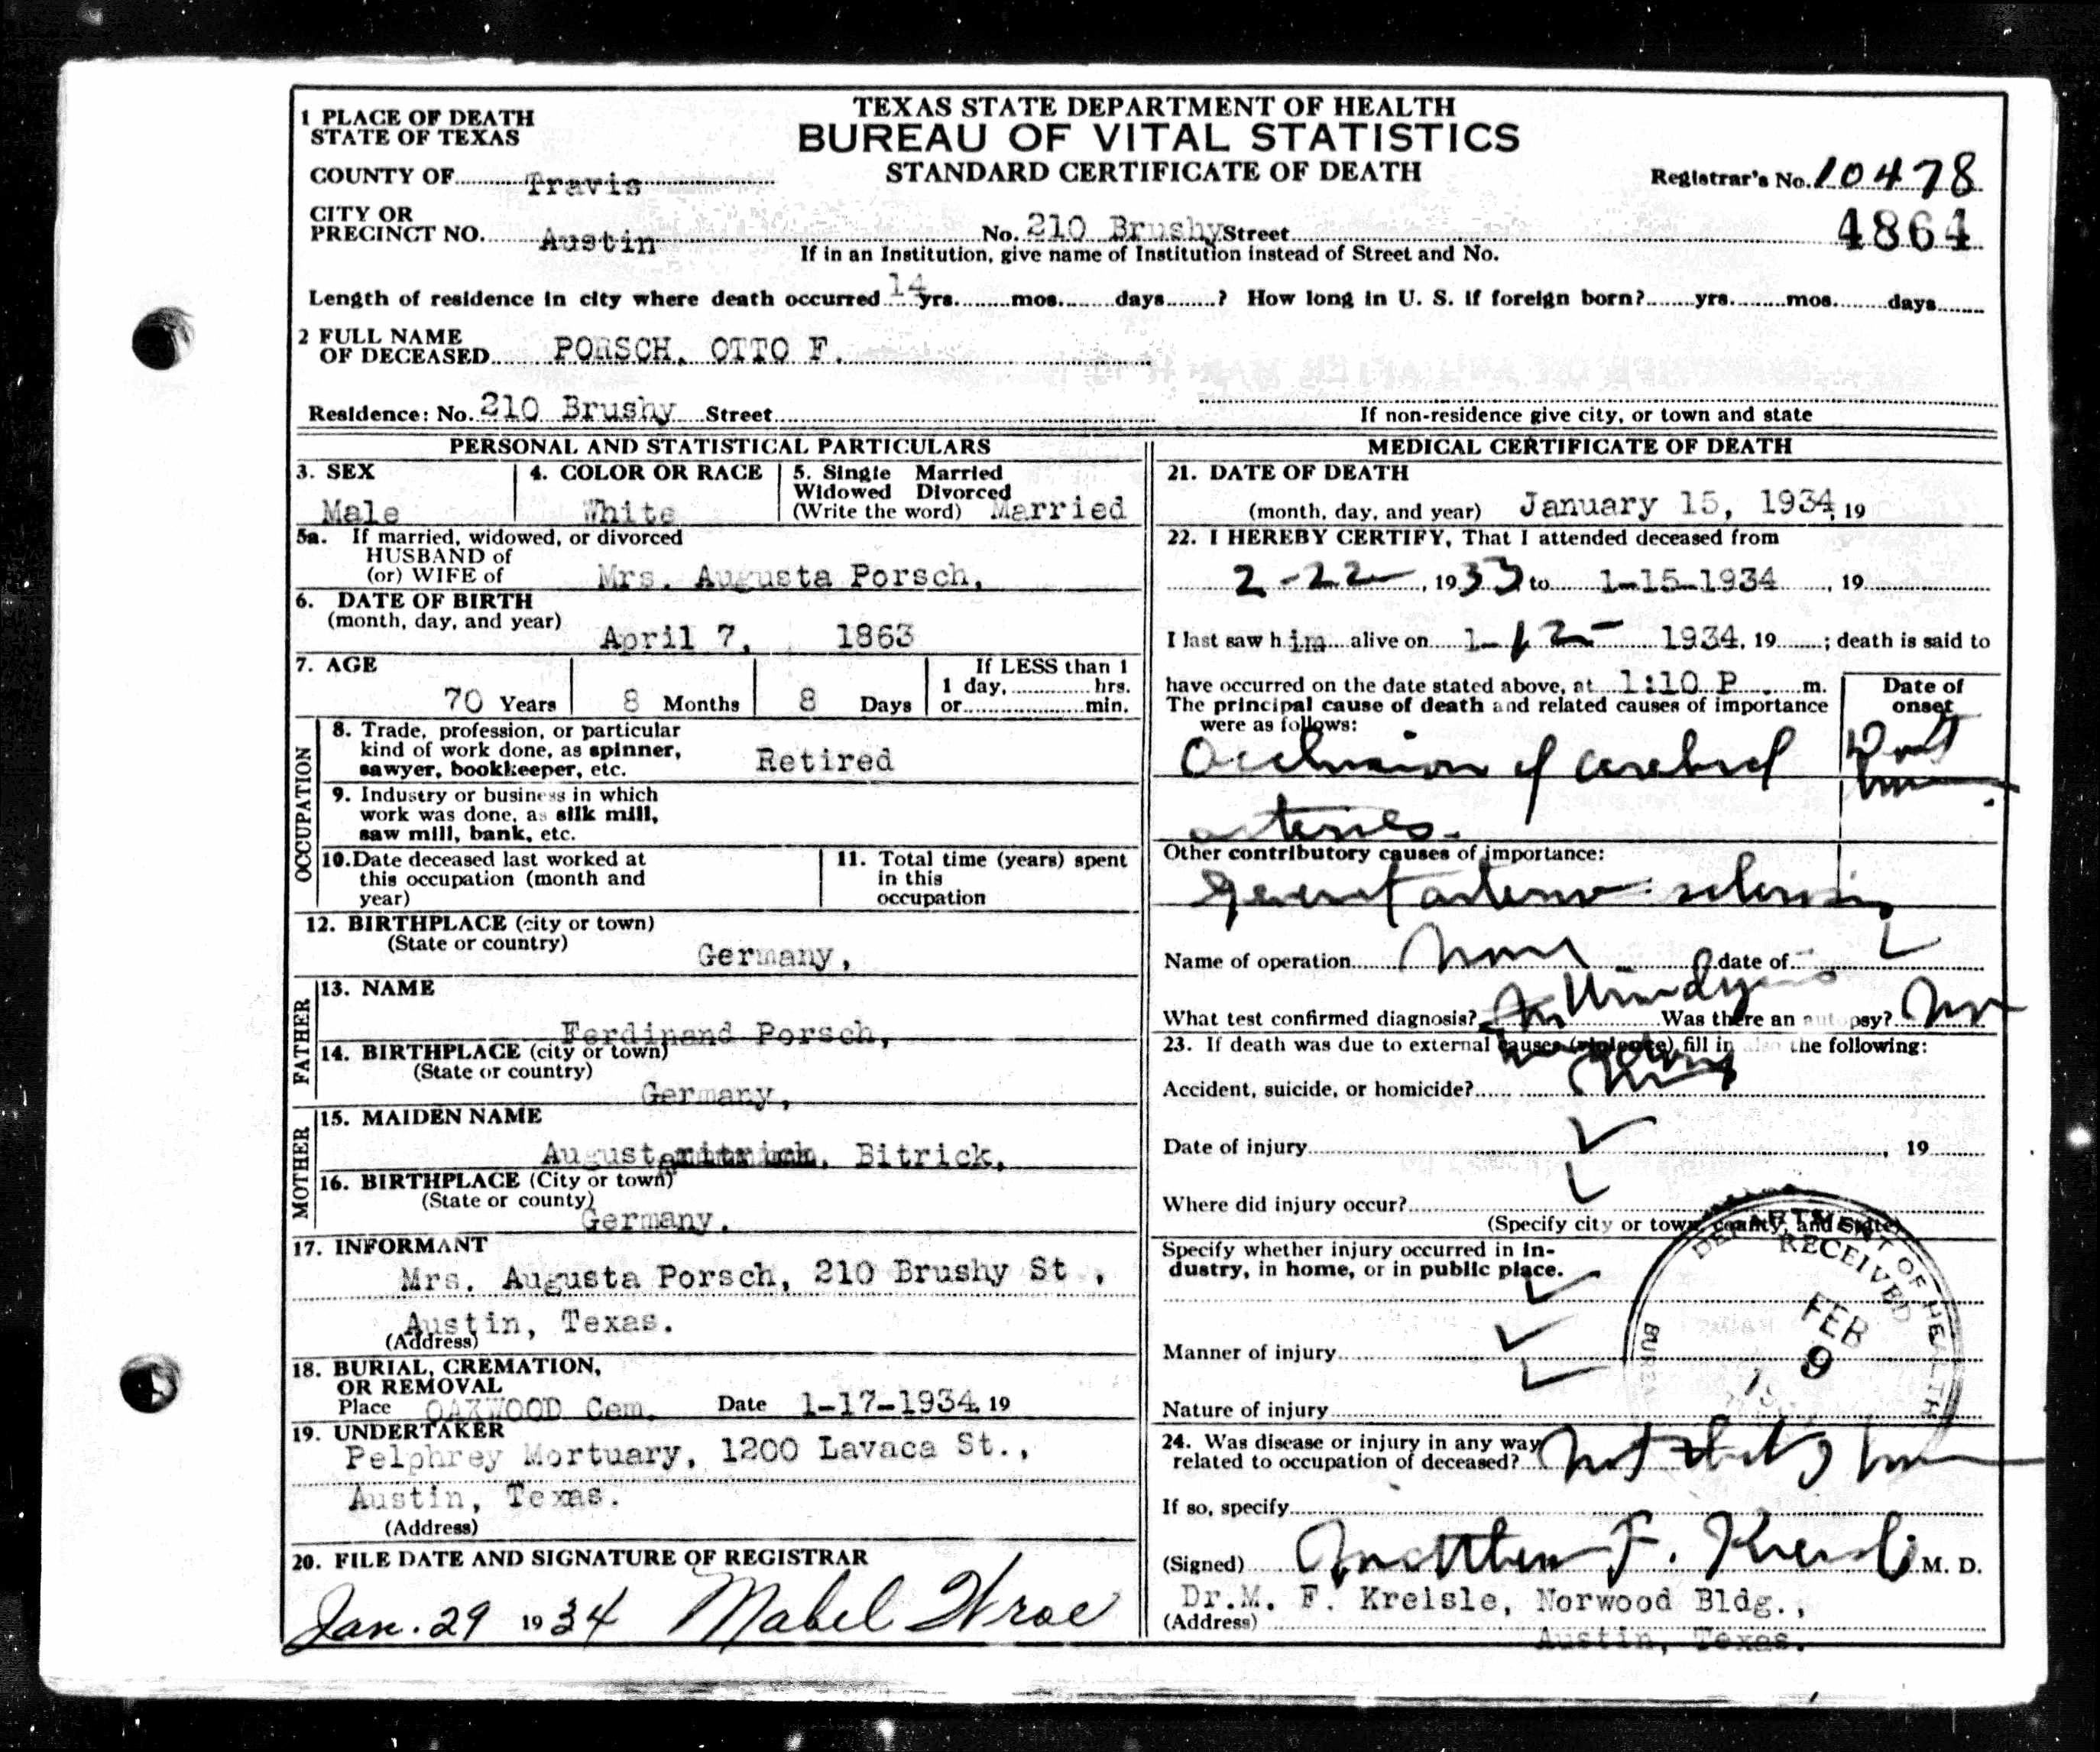 TEXAS STATE DEPARTMENT OF HEALTH
BUREAU OF VITAL STATISTICS
STANDARD CERTIFICATE OF DEATH
1 PLACE OF DEATH
STATE OF TEXAS
COUNTY OF Travis
Registrar's No. 10478
CITY OR
PRECINCT NO. Austin No. 210 Brushy Street 4864
If in an Institution, give name of Institution instead of Street and No.
Length of residence in city where death occurred 14 yrs. mos. days ? How long in U. S. if foreign born? yrs. mos. days
2 FULL NAME
OF DECEASED PORSCH, OTTO F.
Residence: No. 210 Brushy Street
If non-residence give city, or town and state
PERSONAL AND STATISTICAL PARTICULARS
3. SEX Male
4. COLOR OR RACE White
5. Single Married
Widowed Divorced
(Write the word) Married
5a. If married, widowed, or divorced
HUSBAND of
(or) WIFE of Mrs. Augusta Porsch,
6. DATE OF BIRTH
(month, day, and year) April 7, 1863
7. AGE
70 Years 8 Months 8 Days
If LESS than 1
1 day, hrs.
or min.
OCCUPATION
8. Trade, profession, or particular
kind of work done, as spinner,
sawyer, bookkeeper, etc. Retired
9. Industry or business in which
work was done, as silk mill,
saw mill, bank, etc.
10. Date deceased last worked at
this occupation (month and
year)
11. Total time (years) spent
in this
occupation
12. BIRTHPLACE (city or town)
(State or country) Germany,
FATHER
13. NAME
Ferdinand Porsch,
14. BIRTHPLACE (city or town)
(State or country)
Germany,
MOTHER
15. MAIDEN NAME
Augusta Bitrick,
16. BIRTHPLACE (City or town)
(State or county)
Germany.
17. INFORMANT
Mrs. Augusta Porsch, 210 Brushy St ,
Austin, Texas.
(Address)
18. BURIAL, CREMATION,
OR REMOVAL
Place OAKWOOD Cem. Date 1-17-1934, 19
19. UNDERTAKER
Pelphrey Mortuary, 1200 Lavaca St.,
Austin, Texas.
(Address)
20. FILE DATE AND SIGNATURE OF REGISTRAR
Jan. 29 1934 Mabel Wroe
MEDICAL CERTIFICATE OF DEATH
21. DATE OF DEATH
(month, day, and year) January 15, 1934, 19
22. I HEREBY CERTIFY, That I attended deceased from
2-22-, 1933 to 1-15-1934, 19
I last saw him alive on 1-12- 1934, 19 ; death is said to
have occurred on the date stated above, at 1:10 P. m.
The principal cause of death and related causes of importance
were as follows:
Date of
onset
Occlusion of cerebral
arteries.
Other contributory causes of importance:
General arterio-sclerosis
Name of operation None date of
What test confirmed diagnosis? Was there an autopsy? No
23. If death was due to external causes (violence) fill in also the following:
Accident, suicide, or homicide?
Date of injury , 19
Where did injury occur?
(Specify city or town, county, and State)
Specify whether injury occurred in in-
dustry, in home, or in public place.
Manner of injury
Nature of injury
DEPARTMENT OF HEALTH
RECEIVED
FEB
9
24. Was disease or injury in any way
related to occupation of deceased? Not
If so, specify
(Signed) Matthew F. Kreisle M. D.
Dr. M. F. Kreisle, Norwood Bldg.,
(Address)
Austin, Texas.